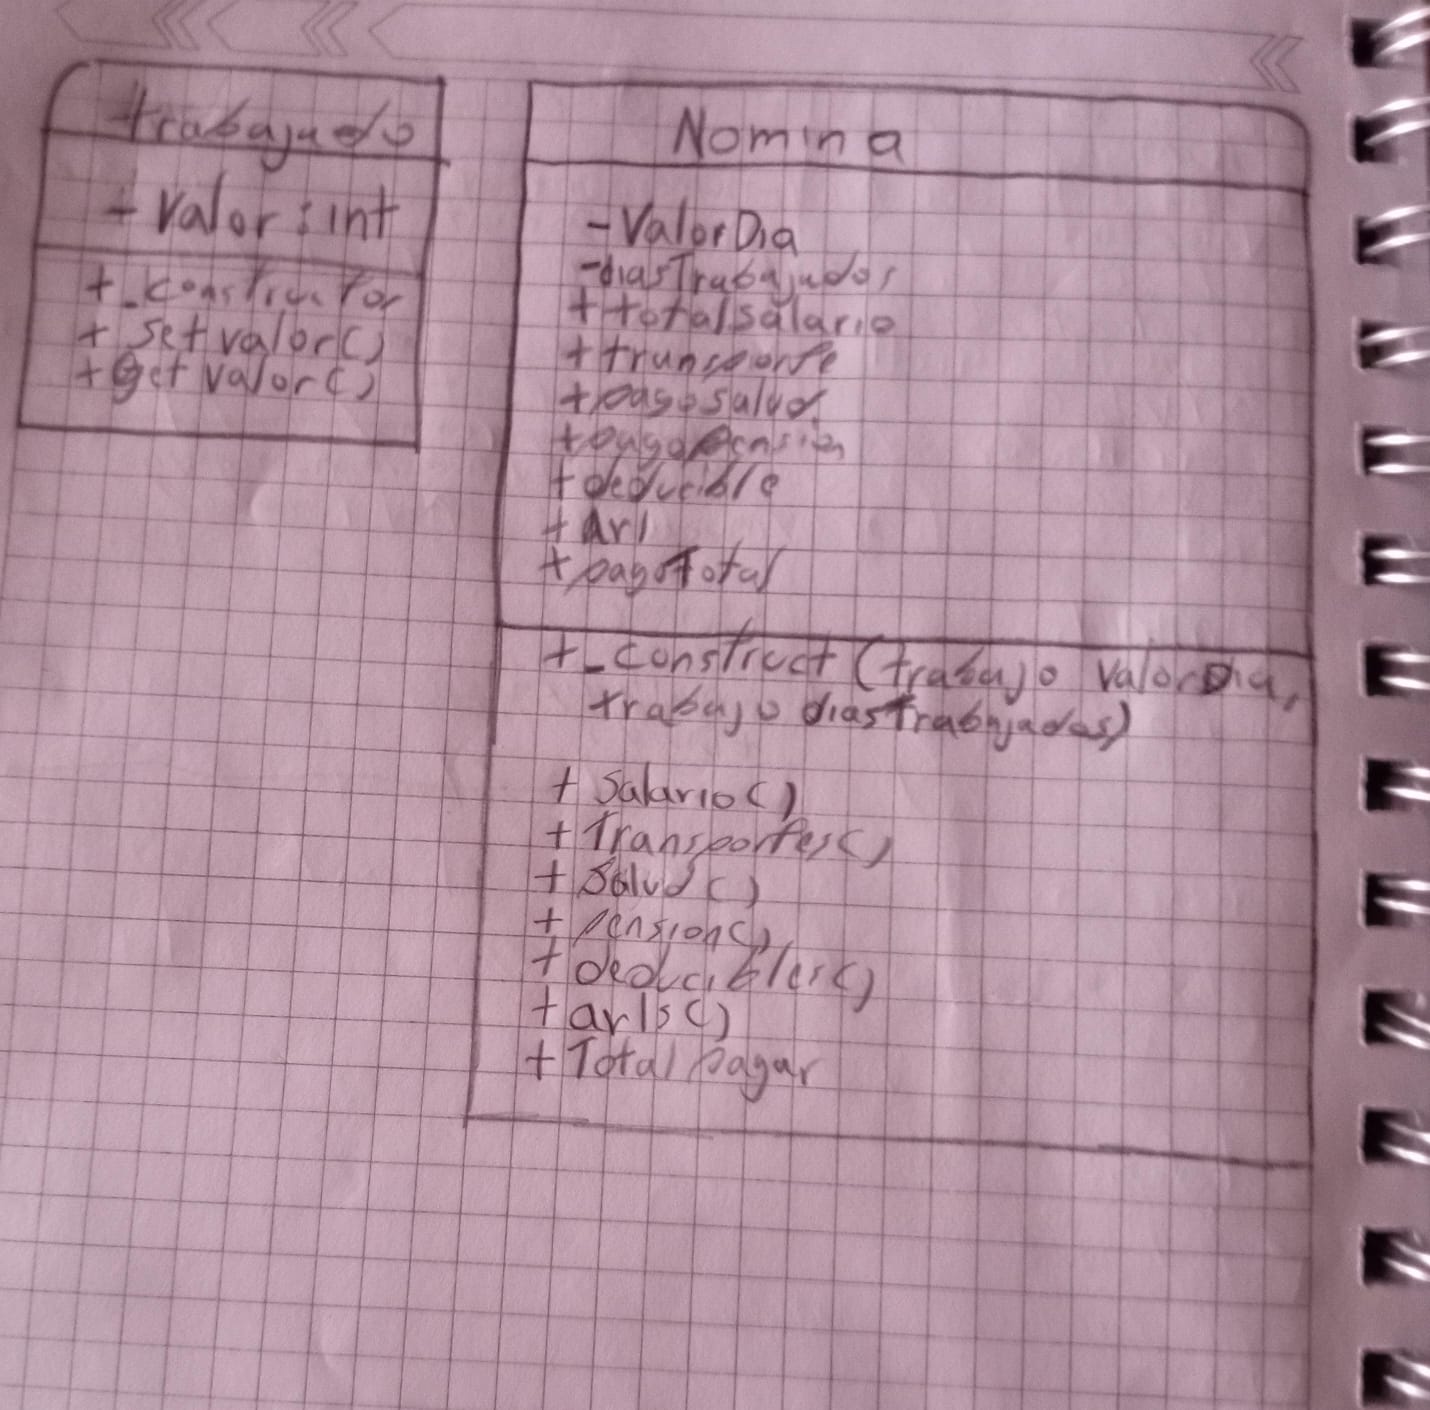 trabajado
- Valor : int
+ _constructor
+ setvalor()
+ getvalor()
Nomina
- ValorDia
- diasTrabajados
+ totalsalario
+ transporte
+ pagosalud
+ pagopension
+ deducible
+ Arl
+ pagoTotal
+ _construct (trabajo valorDia,
trabajo diasTrabajados)
+ Salario()
+ Transportes()
+ Salud()
+ pension()
+ deducibles()
+ arls()
+ Total pagar